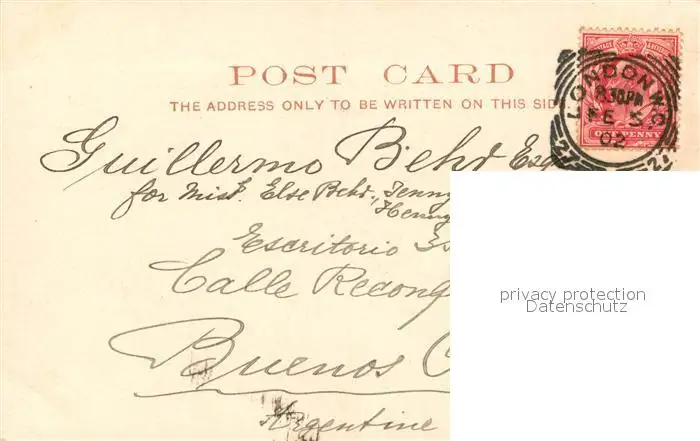 POST CARD
THE ADDRESS ONLY TO BE WRITTEN ON THIS SIDE.
POSTAGE
ONE PENNY
LONDON W.C
8.30PM
FE 5
02
27
27
Guillermo Behd Esq
for Miss. Else Behd., Jenny
Henny
Escritorio 3
Calle Recong
Buenos
Argentine
privacy protection
Datenschutz